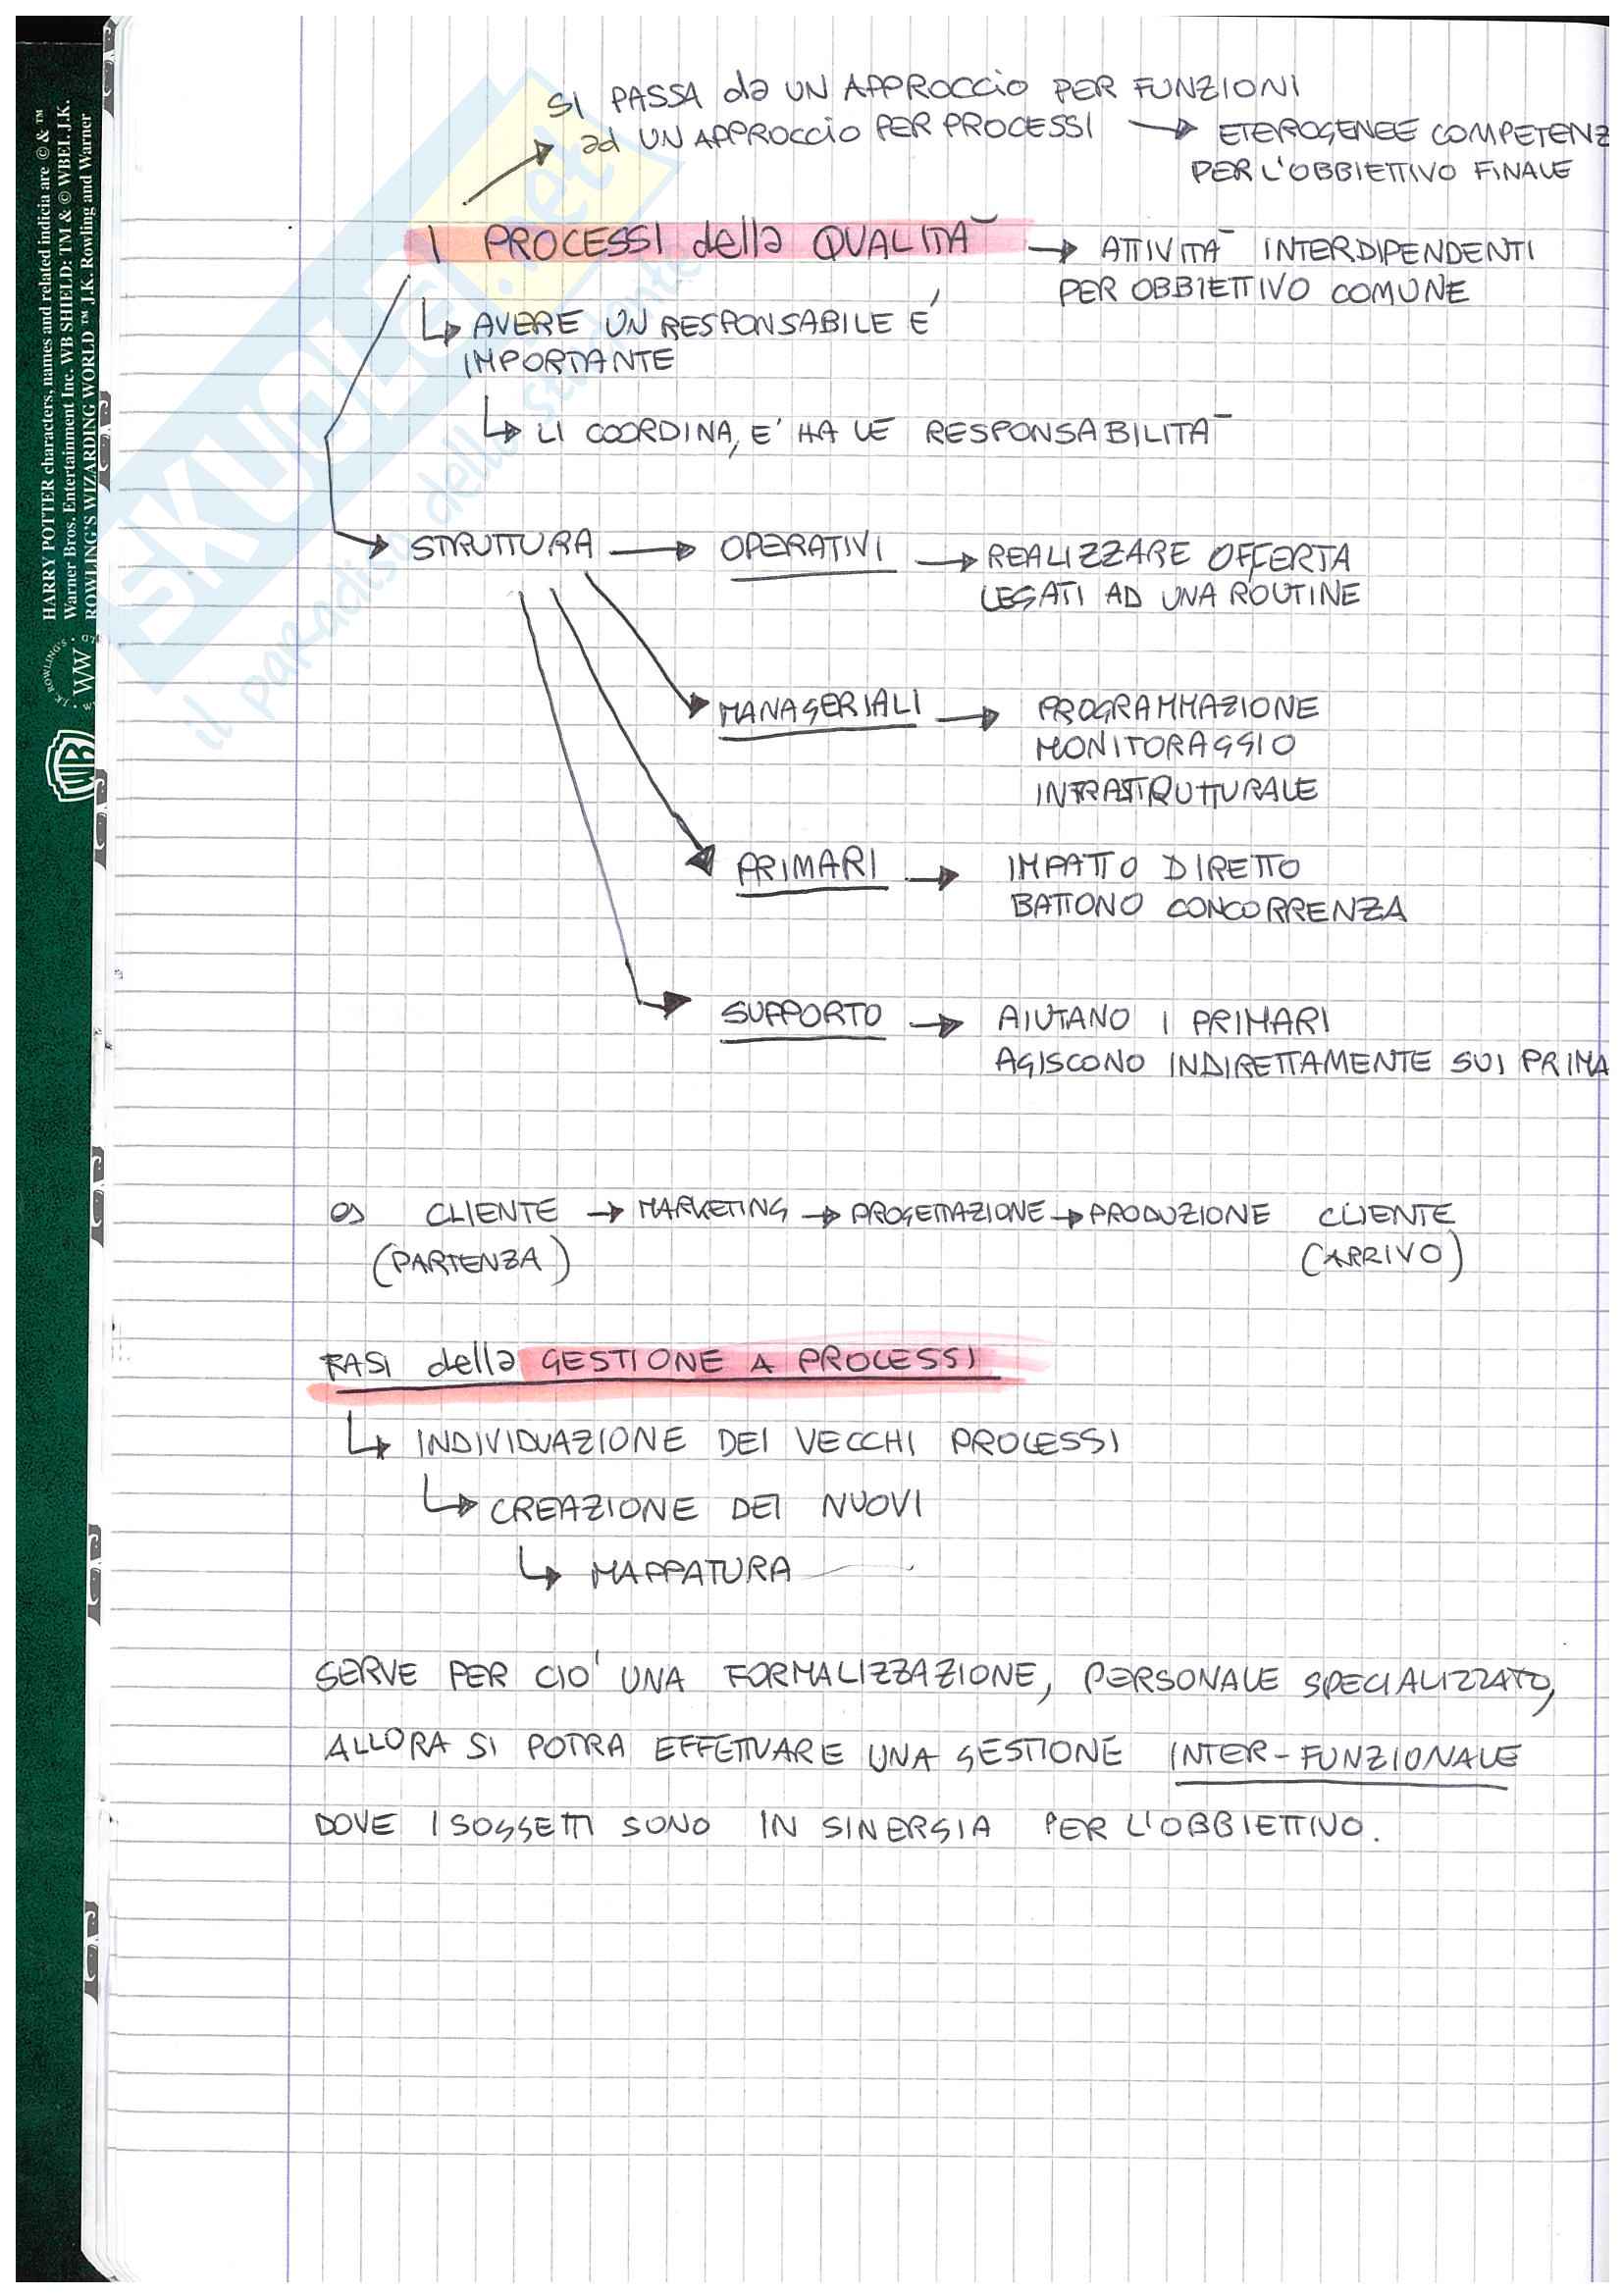 SI PASSA da UN APPROCCIO PER FUNZIONI
ad UN APPROCCIO PER PROCESSI → ETEROGENEE COMPETENZ
PER L'OBBIETTIVO FINALE
I PROCESSI della QUALITÀ → ATTIVITÀ INTERDIPENDENTI
PER OBBIETTIVO COMUNE
AVERE UN RESPONSABILE E'
IMPORTANTE
LI COORDINA, E' HA LE RESPONSABILITÀ
STRUTTURA → OPERATIVI → REALIZZARE OFFERTA
LEGATI AD UNA ROUTINE
MANAGERIALI → PROGRAMMAZIONE
MONITORAGGIO
INFRASTRUTTURALE
PRIMARI → IMPATTO DIRETTO
BATTONO CONCORRENZA
SUPPORTO → AIUTANO I PRIMARI
AGISCONO INDIRETTAMENTE SUI PRIMA
es CLIENTE → MARKETING → PROGETTAZIONE → PRODUZIONE CLIENTE
(PARTENZA) (ARRIVO)
FASI della GESTIONE A PROCESSI
INDIVIDUAZIONE DEI VECCHI PROCESSI
CREAZIONE DEI NUOVI
MAPPATURA
SERVE PER CIO' UNA FORMALIZZAZIONE, PERSONALE SPECIALIZZATO,
ALLORA SI POTRA EFFETTUARE UNA GESTIONE INTER-FUNZIONALE
DOVE I SOGGETTI SONO IN SINERGIA PER L'OBBIETTIVO.
HARRY POTTER characters, names and related indicia are © & ™
Warner Bros. Entertainment Inc. WB SHIELD: TM & © WBEI. J.K.
ROWLING'S WIZARDING WORLD ™ J.K. Rowling and Warner
J.K. ROWLING'S
WW
WB
SKUOLA.net
il paradiso dello studente